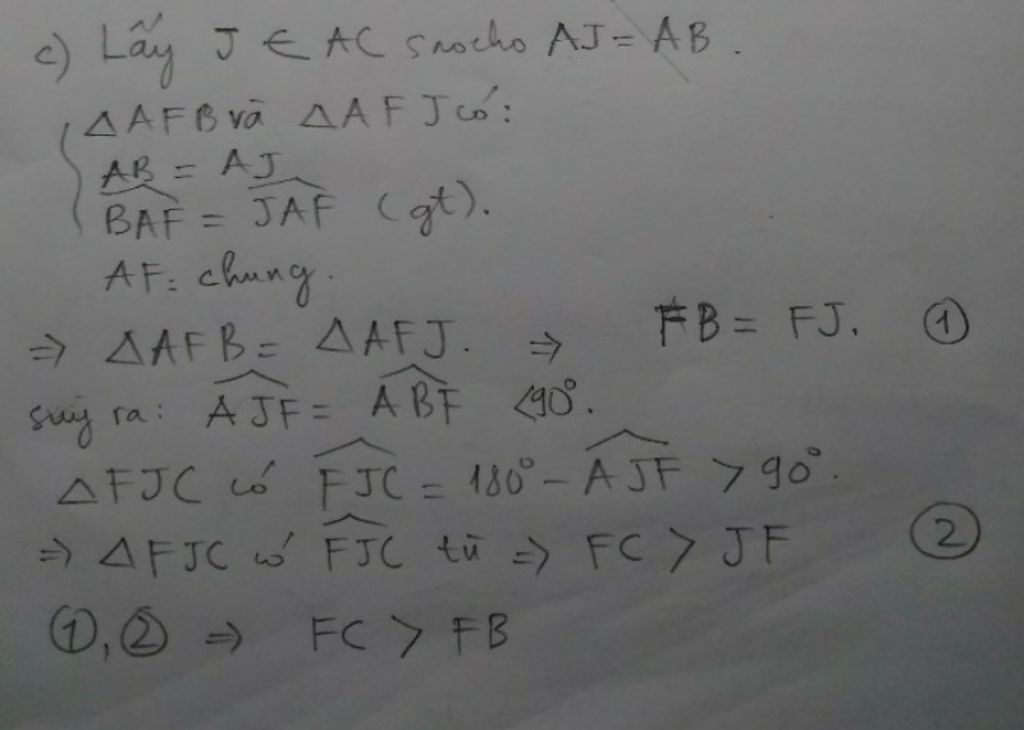 c) Lấy J ∈ AC sao cho AJ = AB.
ΔAFB và ΔAFJ có:
AB = AJ
\widehat{BAF} = \widehat{JAF} (gt).
AF: chung.
⇒ ΔAFB = ΔAFJ. ⇒ FB = FJ. ①
suy ra: \widehat{AJF} = \widehat{ABF} < 90°.
ΔFJC có \widehat{FJC} = 180° - \widehat{AJF} > 90°.
⇒ ΔFJC có \widehat{FJC} tù ⇒ FC > JF ②
①, ② ⇒ FC > FB